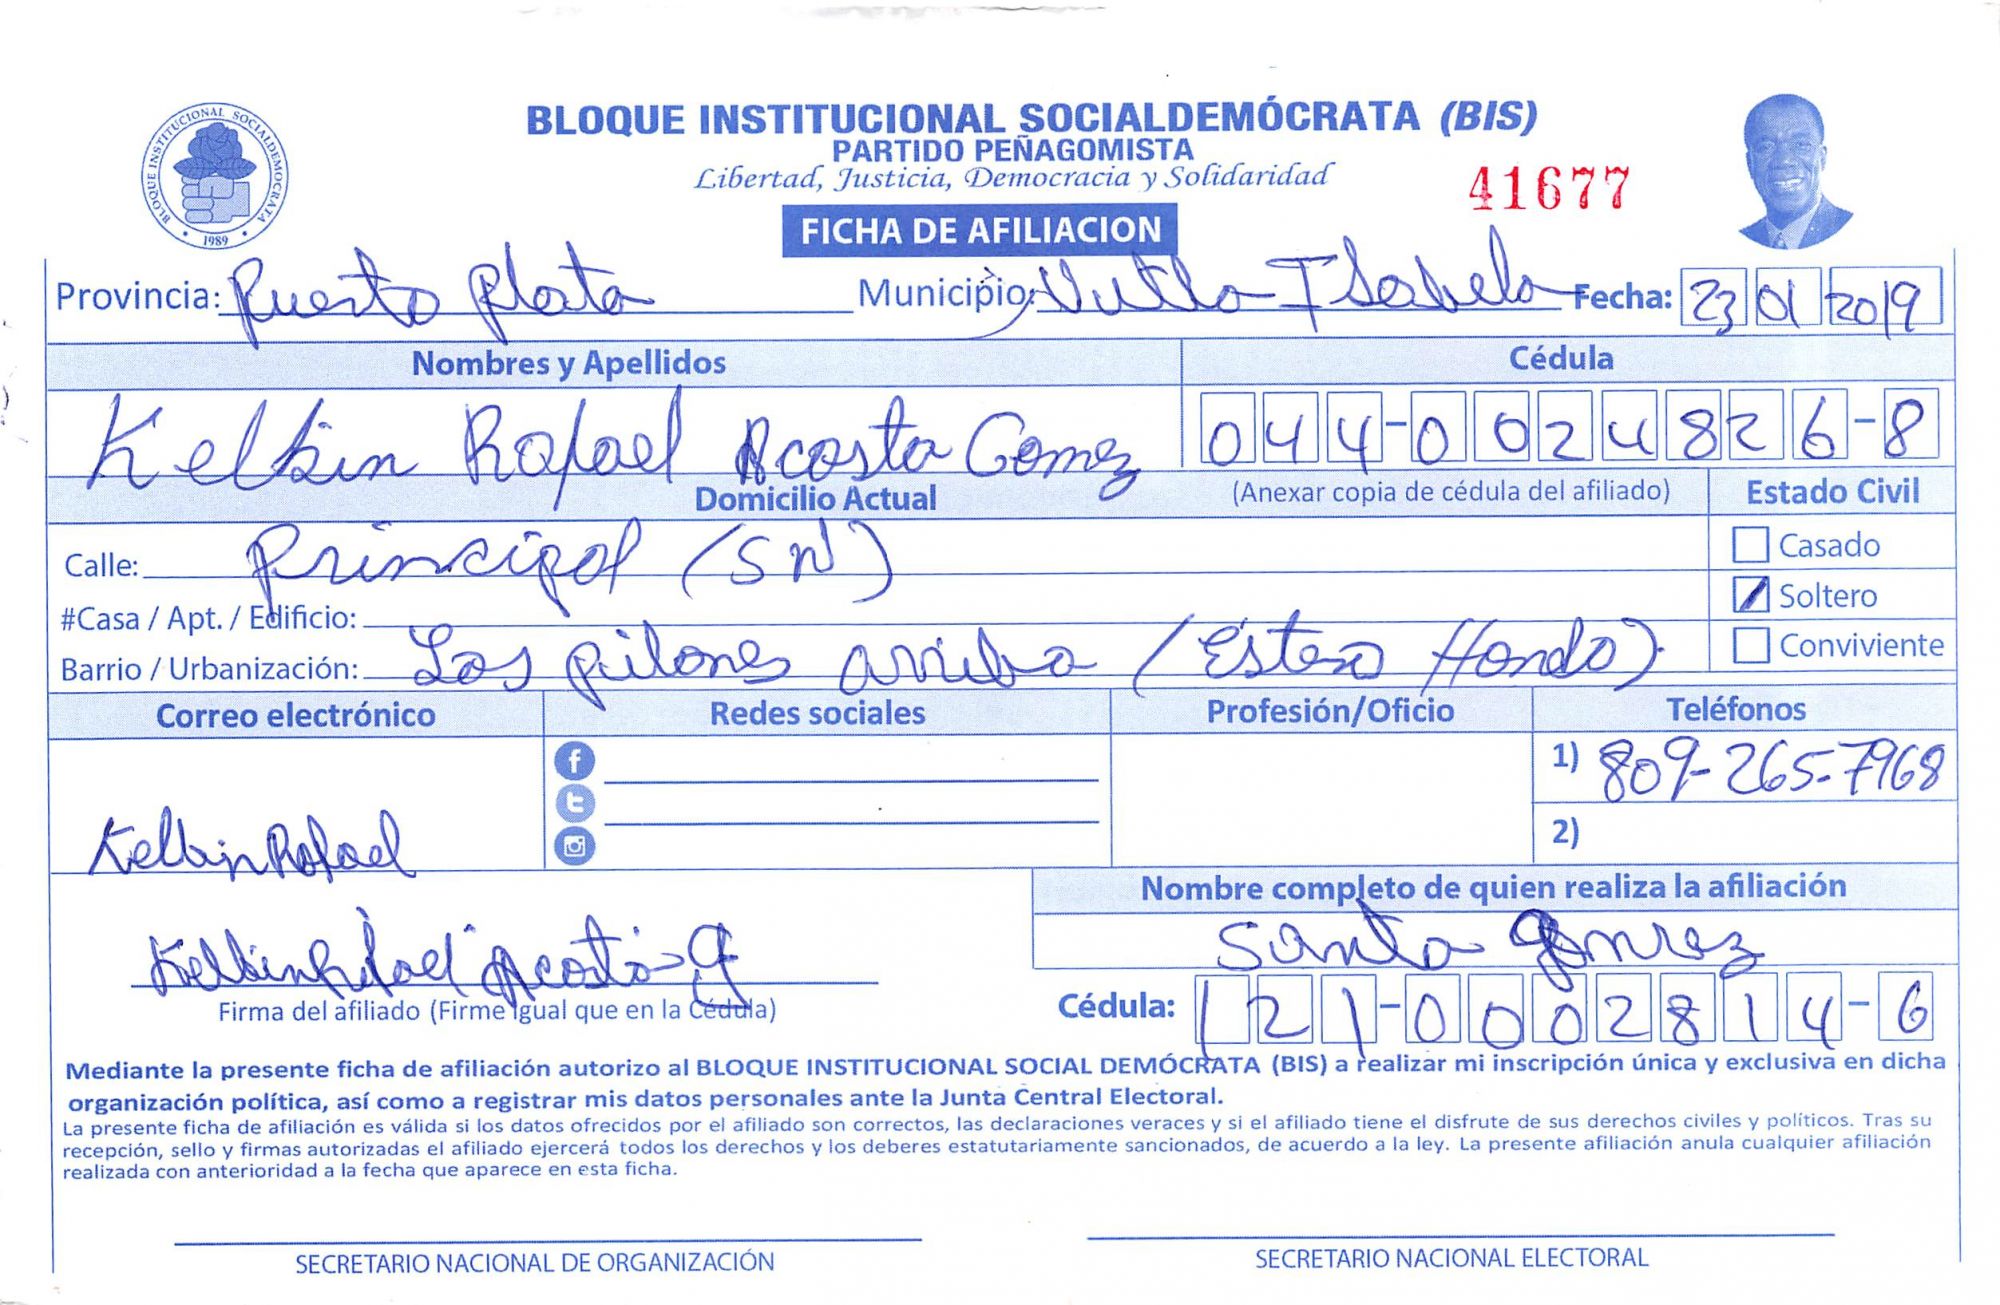 BLOQUE INSTITUCIONAL SOCIALDEMOCRATA
1989
BLOQUE INSTITUCIONAL SOCIALDEMÓCRATA (BIS)
PARTIDO PEÑAGOMISTA
Libertad, Justicia, Democracia y Solidaridad
41677
FICHA DE AFILIACION
Provincia: Puerto Plata Municipio: Villa Isabela Fecha: 23 01 2019
Nombres y Apellidos Cédula
Kelbin Rafael Acosta Gomez 044-0024826-8
Domicilio Actual (Anexar copia de cédula del afiliado) Estado Civil
Calle: Principal (SN) Casado
#Casa / Apt. / Edificio: Soltero
Barrio / Urbanización: Los pilones arriba (Estero Hondo) Conviviente
Correo electrónico Redes sociales Profesión/Oficio Teléfonos
1) 809-265-7968
2)
Kelbin Rafael
Nombre completo de quien realiza la afiliación
Santa
Kelbin Rafael Acosta G
Firma del afiliado (Firme Igual que en la Cédula) Cédula: 121-0002814-6
Mediante la presente ficha de afiliación autorizo al BLOQUE INSTITUCIONAL SOCIAL DEMÓCRATA (BIS) a realizar mi inscripción única y exclusiva en dicha
organización política, así como a registrar mis datos personales ante la Junta Central Electoral.
La presente ficha de afiliación es válida si los datos ofrecidos por el afiliado son correctos, las declaraciones veraces y si el afiliado tiene el disfrute de sus derechos civiles y políticos. Tras su
recepción, sello y firmas autorizadas el afiliado ejercerá todos los derechos y los deberes estatutariamente sancionados, de acuerdo a la ley. La presente afiliación anula cualquier afiliación
realizada con anterioridad a la fecha que aparece en esta ficha.
SECRETARIO NACIONAL DE ORGANIZACIÓN SECRETARIO NACIONAL ELECTORAL